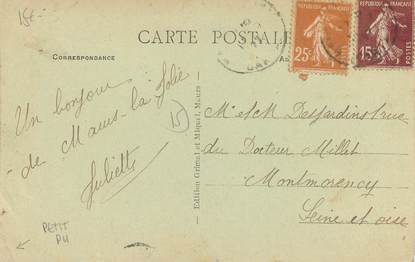 15€-
CARTE POSTALE
CORRESPONDANCE
REPUBLIQUE FRANÇAISE
25c
REPUBLIQUE FRANÇAISE
15c
POSTES
Un bonjour
de Maurs-la-Jolie
Juliette
15
Edition Grimal et Miquel, Maurs
Mr et M Desjardins rue
du Docteur Millet
Montmorency
Seine et oise
PETIT
PLI